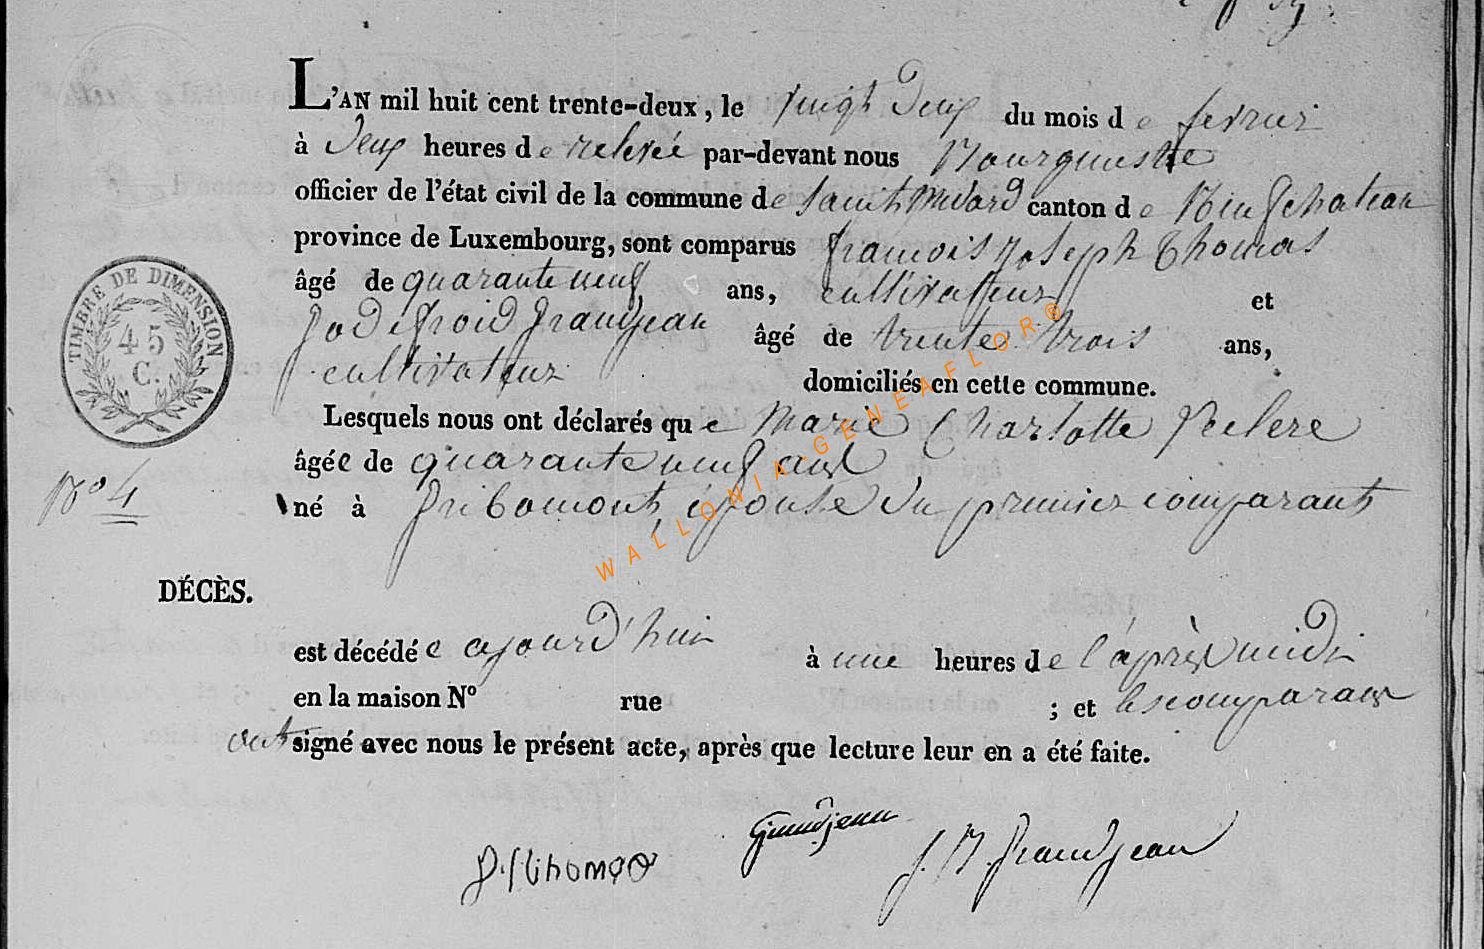 L'AN mil huit cent trente-deux, le vingt Deux du mois de fevrier
à Deux heures de relevée par-devant nous Bourguemestre
officier de l'état civil de la commune de Saint Médard canton de Neufchateau
province de Luxembourg, sont comparus francois Joseph Thomas
âgé de quarante neuf ans, cultivateur et
Godefroid Grandjean âgé de trente trois ans,
cultivateur domiciliés en cette commune.
Lesquels nous ont déclarés que Marie Charlotte
âgée de quarante neuf ans
né à Gribomont, épouse du premier comparant
N° 4
DÉCÈS.
est décédée ajourd'huis à une heures de l'après midi
en la maison N° rue ; et les comparans
ont signé avec nous le présent acte, après que lecture leur en a été faite.
Grandjean
J. Grandjean
TIMBRE DE DIMENSION
45
C.
WALLONIA-GENEAFLOR®